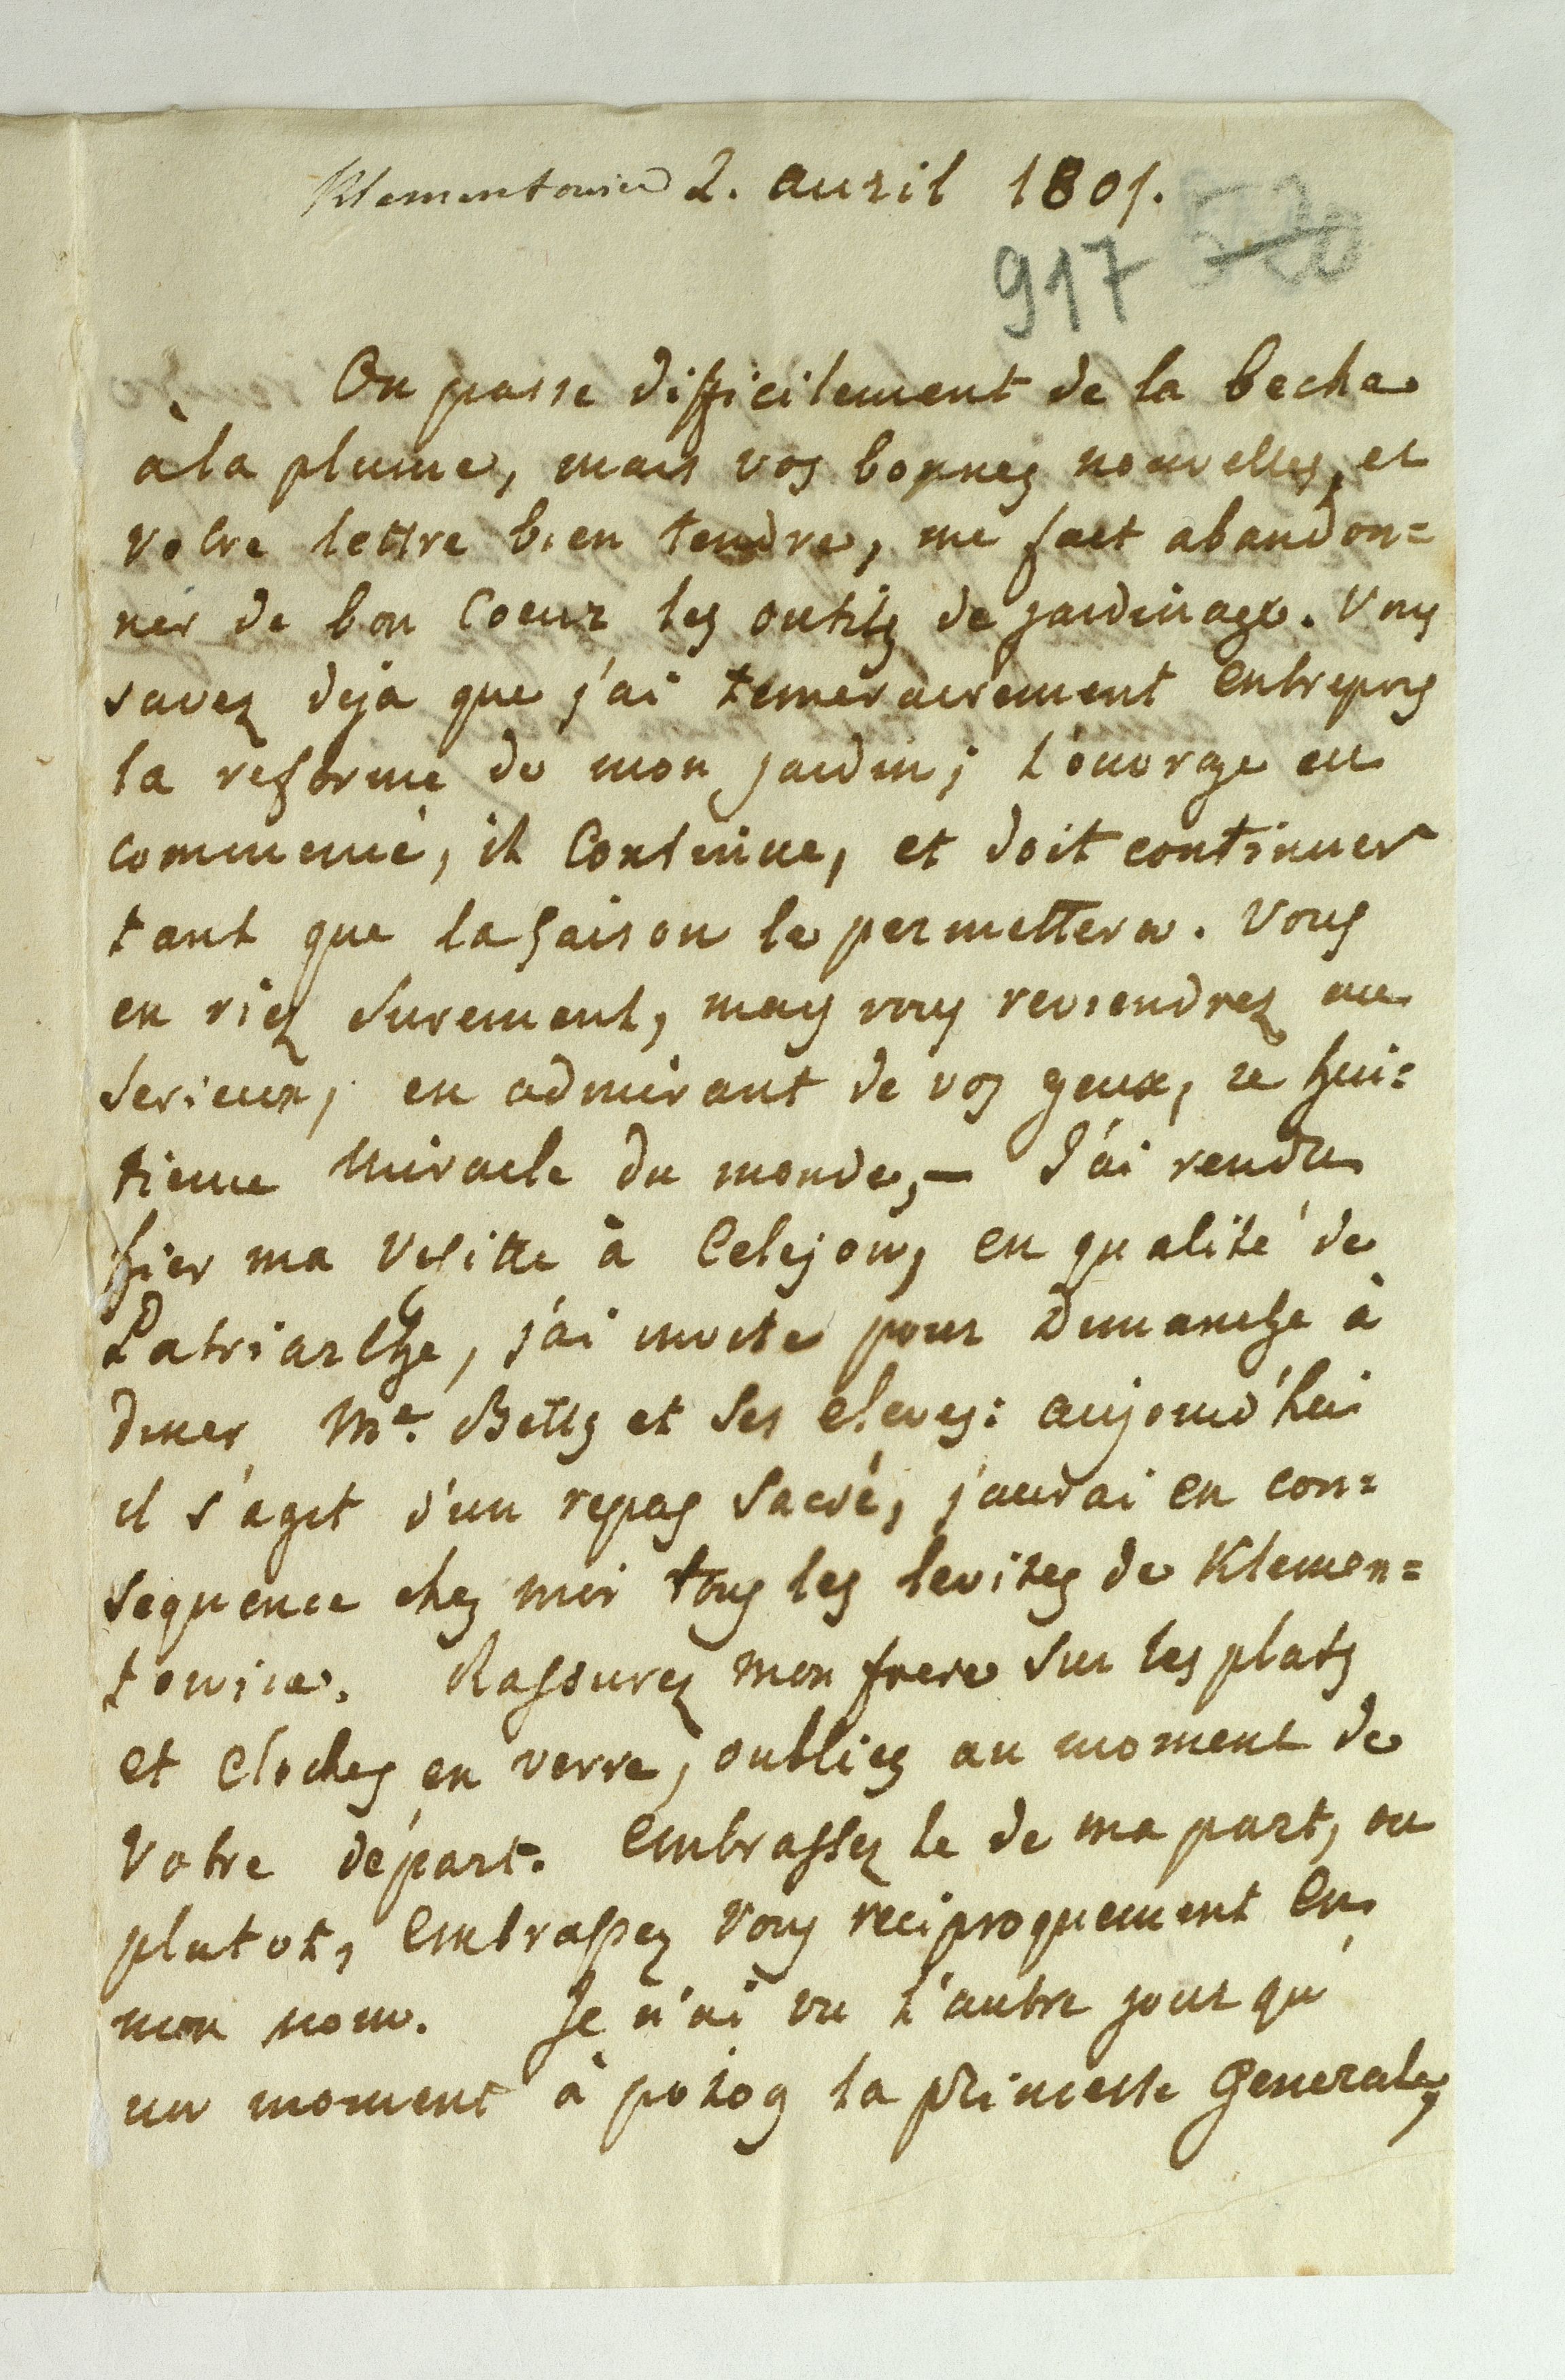 Klementowice 2. avril 1801.
917
On passe difficilement de la beche
à la plume, mais vos bonnes nouvelles, et
votre lettre bien tendre, me fait abandon=
ner de bon Coeur les outils de jardinage. Vous
savez deja que j'ai temerairement entrepris
la reforme de mon jardin; l'ouvrage est
commencé, il Continue, et doit continuer
tant que la saison le permettera. Vous
en riez surement, mais vous reviendrez au
serieux, en admirant de vos yeux, ce hui=
tieme Miracle du monde, – J'ai rendu
hier ma visitte à Celejow, en qualité de
Patriarche, j'ai invité pour Dimanche à
diner Me. Betts et ses eleves: aujourd'hui
il s'agit d'un repas sacré, j'aurai en con=
sequence chez moi tous les levites de Klemen=
towice. Rassurez mon frere sur les plats
et cloches en verre, oubliez au moment de
votre départ. Embrassez le de ma part, ou
plutot, Embrassez vous reciproquement en
mon nom. Je n'ai vu l'autre jour qu'
un moment à pozog la princesse Generale,